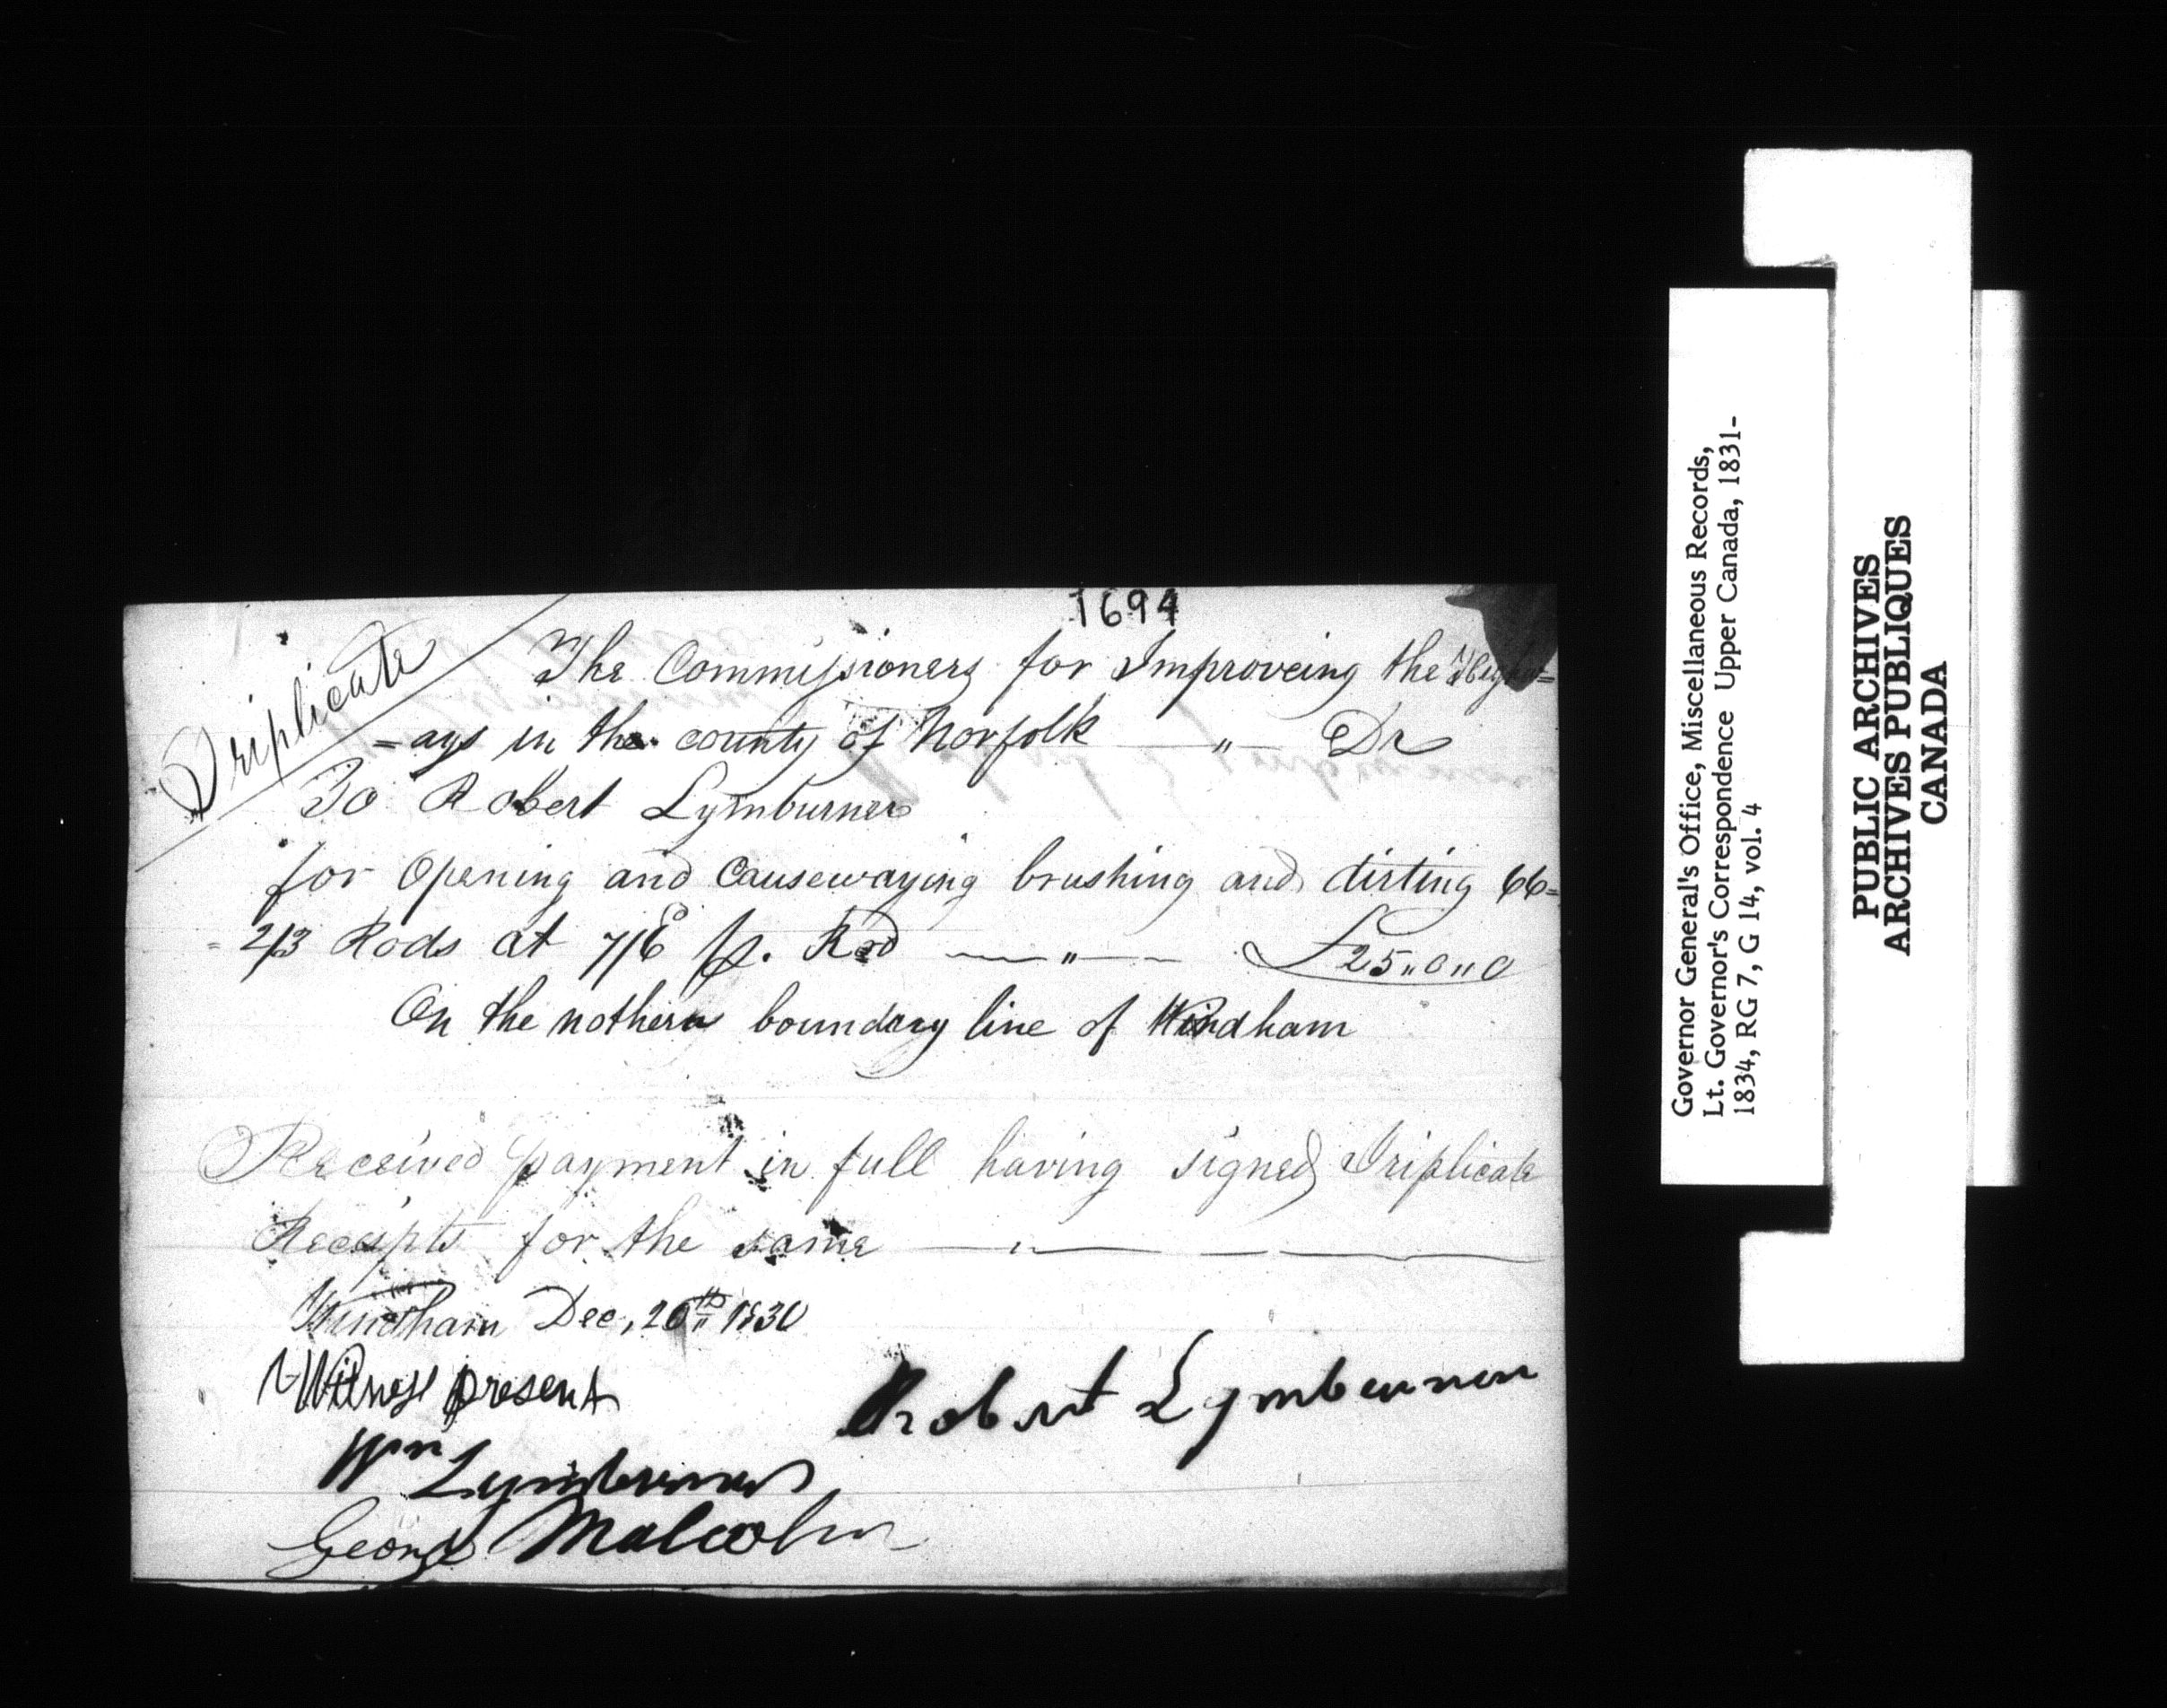 1694
Triplicate
The Commissioners for Improveing the Highw=
=ays in the county of Norfolk — " — Dr
To Robert Lymburner
for Opening and Causewaying brushing and dirting 66=
=2/3 Rods at 7/6 p. Rod — " — £25"0"0
On the nothern boundary line of Windham
Received payment in full having signed Triplicate
Receipts for the same
Windham Dec, 20th 1830
Witness present
Robert Lymburner
Wm Lymburner
George Malcolm
Governor General's Office, Miscellaneous Records,
Lt. Governor's Correspondence Upper Canada, 1831-
1834, RG 7, G 14, vol. 4
PUBLIC ARCHIVES
ARCHIVES PUBLIQUES
CANADA